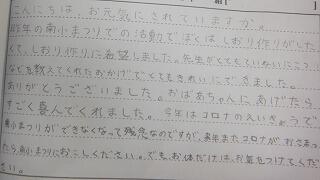 こんにちは。お元気にされていますか。
昨年の南小まつりでの活動でぼくはしおり作りがした
くて、しおり作りに希望しました。先生がとてもていねいにこつ
なども教えてくれたおかげでとてもきれいにできました。
ありがとうございました。おばあちゃんにあげたら
すごく喜んでくれました。今年はコロナのえいきょうで
南小まつりができなくなって残念なのですが、来年またコロナがおさまっ
たら南小まつりにおこしください。でも、お体だけは、お気をつけてくだ
さい。